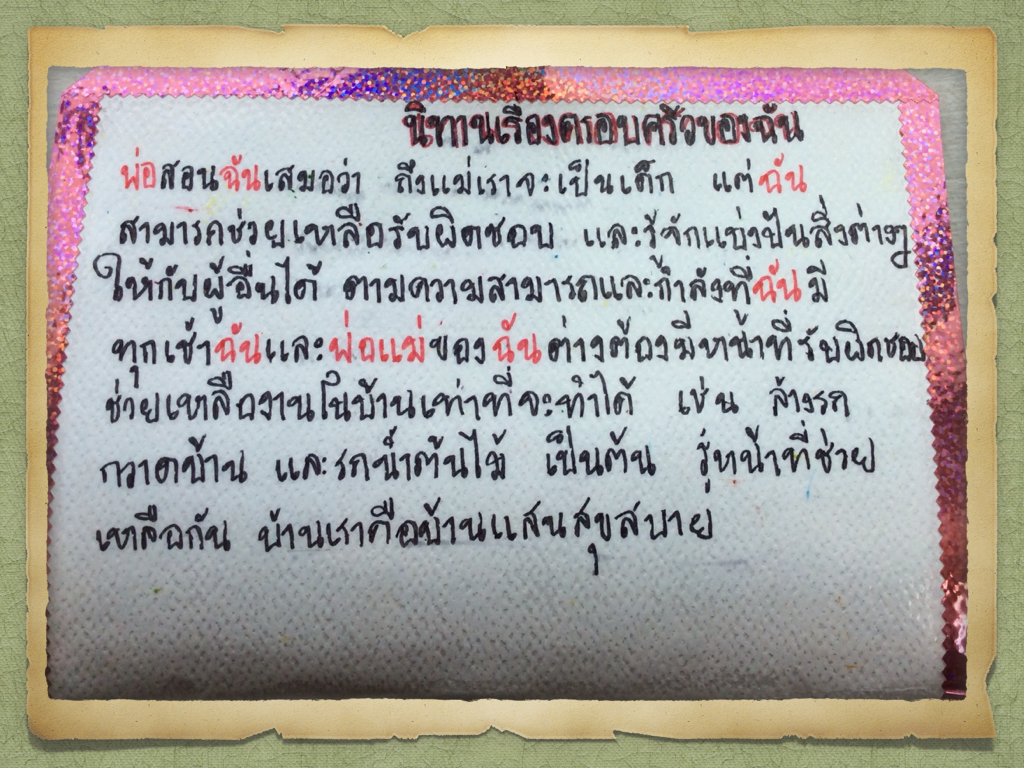 นิทานเรื่องครอบครัวของฉัน
พ่อสอนฉันเสมอว่า ถึงแม่เราจะเป็นเด็ก แต่ฉัน
สามารถช่วยเหลือรับผิดชอบ และรู้จักแบ่งปันสิ่งต่างๆ
ให้กับผู้อื่นได้ ตามความสามารถและกำลังที่ฉันมี
ทุกเช้าฉันและพ่อแม่ของฉันต่างต้องมีหน้าที่รับผิดชอบ
ช่วยเหลืองานในบ้านเท่าที่จะทำได้ เช่น ล้างรถ
กวาดบ้าน และรดน้ำต้นไม้ เป็นต้น รู้หน้าที่ช่วย
เหลือกัน บ้านเราคือบ้านแสนสุขสบาย